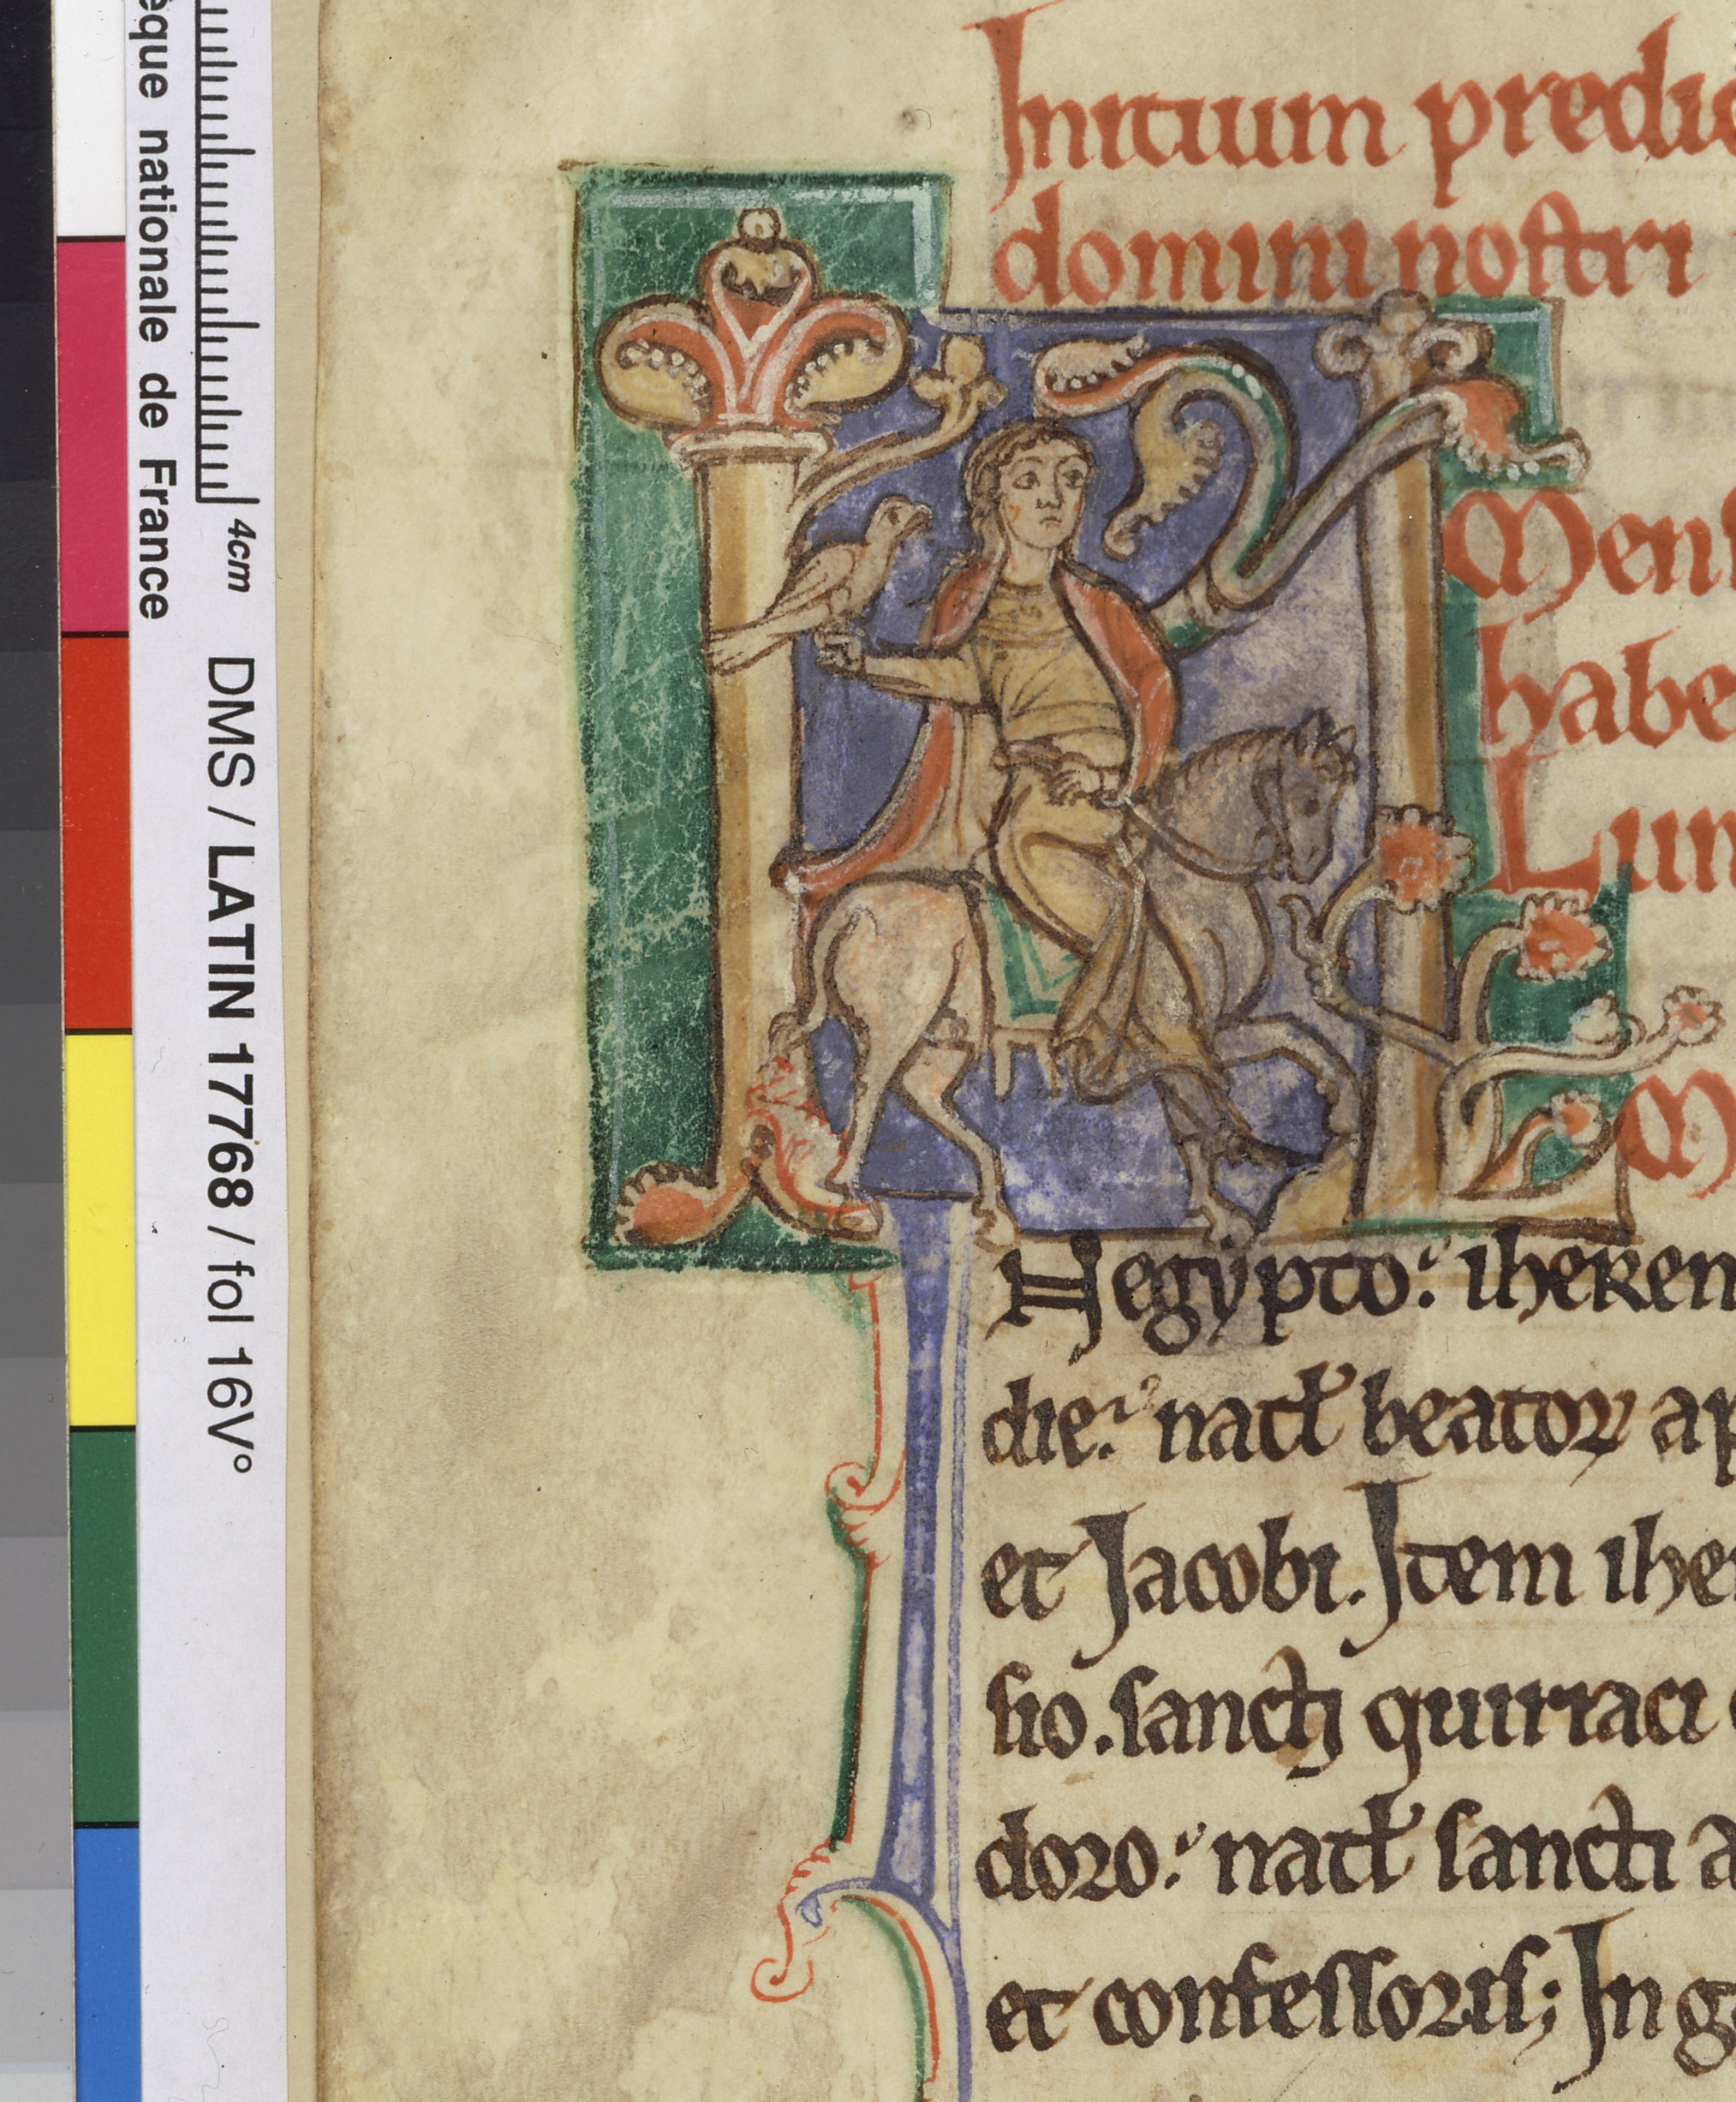 èque nationale de France
4cm DMS / LATIN 17768 / fol 16V°
Initium predic
domini nostri
Mens
habe
Lun
M
N egypto: iherem
die: natl' beatoꝝ ap
et Jacobi. Item ihe
sio. sancti quiriaci
doro: natl' sancti a
et confessoris; In g